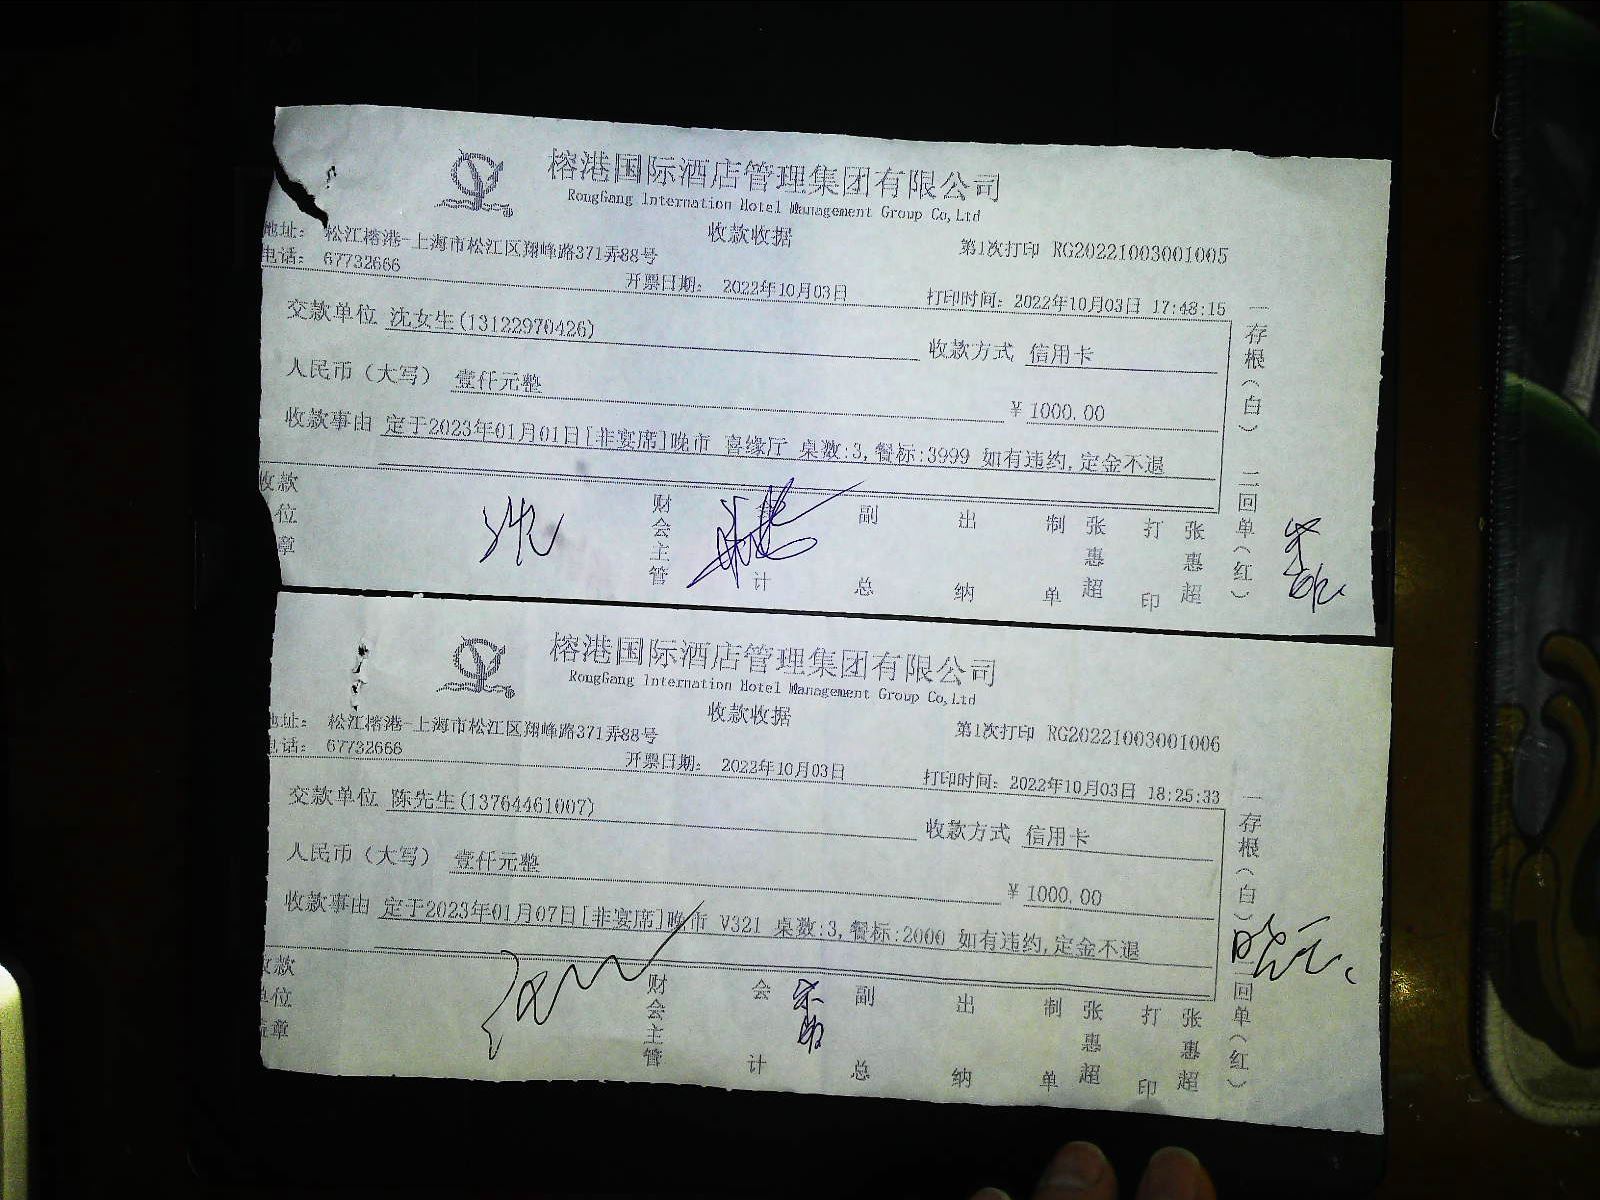 榕港国际酒店管理集团有限公司
RongGang Internation Hotel Management Group Co,Ltd
收款收据
地址： 松江榕港-上海市松江区翔峰路371弄88号
第1次打印 RG20221003001005
电话： 67732666
开票日期： 2022年10月03日
打印时间：2022年10月03日 17:48:15
交款单位 沈女生(13122970426)
收款方式 信用卡
人民币（大写） 壹仟元整
￥1000.00
收款事由 定于2023年01月01日[非宴席]晚市 喜缘厅 桌数:3,餐标:3999 如有违约,定金不退
收款
位
章
财会主管 会计 副总 出纳 制单 张惠超 打印 张惠超
一存根（白） 二回单（红）
榕港国际酒店管理集团有限公司
RongGang Internation Hotel Management Group Co,Ltd
收款收据
地址： 松江榕港-上海市松江区翔峰路371弄88号
第1次打印 RG20221003001006
电话： 67732666
开票日期： 2022年10月03日
打印时间：2022年10月03日 18:25:33
交款单位 陈先生(13764461007)
收款方式 信用卡
人民币（大写） 壹仟元整
￥1000.00
收款事由 定于2023年01月07日[非宴席]晚市 V321 桌数:3,餐标:2000 如有违约,定金不退
收款
单位
盖章
财会主管 会计 副总 出纳 制单 张惠超 打印 张惠超
一存根（白） 二回单（红）